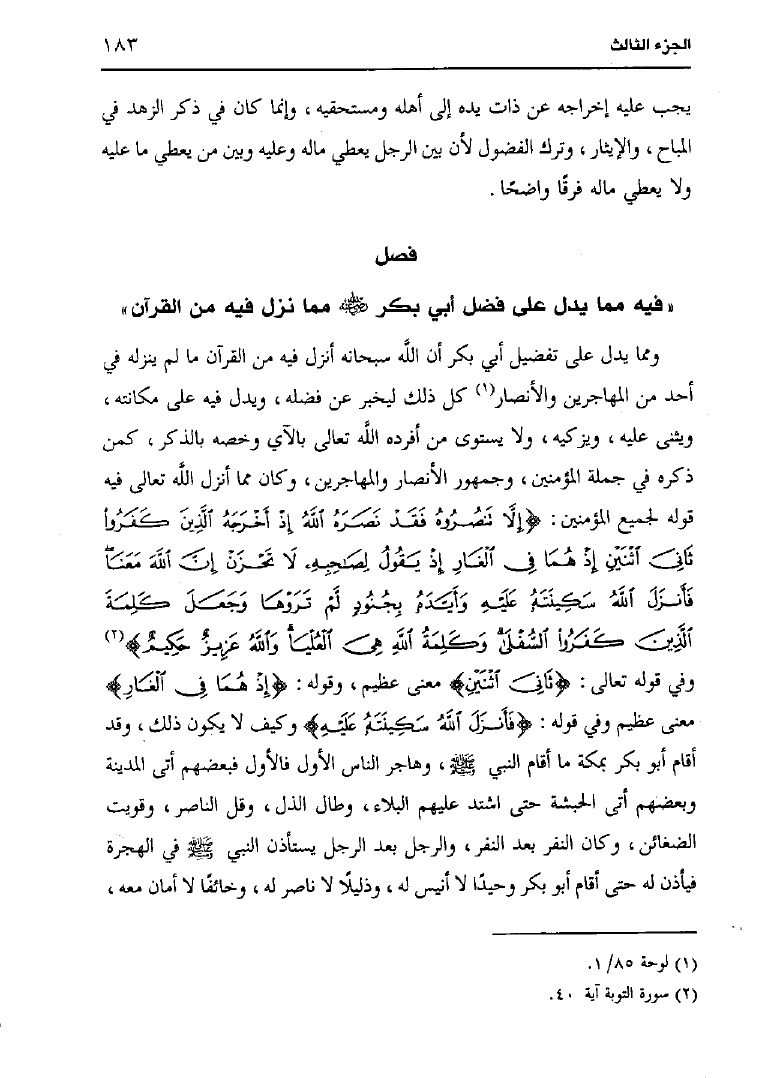 الجزء الثالث ١٨٣
يجب عليه إخراجه عن ذات يده إلى أهله ومستحقيه ، وإنما كان في ذكر الزهد في
المباح ، والإيثار ، وترك الفضول لأن بين الرجل يعطي ماله وعليه وبين من يعطي ما عليه
ولا يعطي ماله فرقًا واضحًا .
فصل
« فيه مما يدل على فضل أبي بكر ﵁ مما نزل فيه من القرآن »
ومما يدل على تفضيل أبي بكر أن اللَّه سبحانه أنزل فيه من القرآن ما لم ينزله في
أحد من المهاجرين والأنصار(١) كل ذلك ليخبر عن فضله ، ويدل فيه على مكانته ،
ويثنى عليه ، ويزكيه ، ولا يستوى من أفرده اللَّه تعالى بالآي وخصه بالذكر ، كمن
ذكره في جملة المؤمنين ، وجمهور الأنصار والمهاجرين ، وكان مما أنزل اللَّه تعالى فيه
قوله لجميع المؤمنين : ﴿إِلَّا تَنصُرُوهُ فَقَدْ نَصَرَهُ ٱللَّهُ إِذْ أَخْرَجَهُ ٱلَّذِينَ كَفَرُوا۟
ثَانِىَ ٱثْنَيْنِ إِذْ هُمَا فِى ٱلْغَارِ إِذْ يَقُولُ لِصَٰحِبِهِۦ لَا تَحْزَنْ إِنَّ ٱللَّهَ مَعَنَا ۖ
فَأَنزَلَ ٱللَّهُ سَكِينَتَهُۥ عَلَيْهِ وَأَيَّدَهُۥ بِجُنُودٍ لَّمْ تَرَوْهَا وَجَعَلَ كَلِمَةَ
ٱلَّذِينَ كَفَرُوا۟ ٱلسُّفْلَىٰ ۗ وَكَلِمَةُ ٱللَّهِ هِىَ ٱلْعُلْيَا ۗ وَٱللَّهُ عَزِيزٌ حَكِيمٌ﴾(٢)
وفي قوله تعالى : ﴿ثَانِىَ ٱثْنَيْنِ﴾ معنى عظيم ، وقوله : ﴿إِذْ هُمَا فِى ٱلْغَارِ﴾
معنى عظيم وفي قوله : ﴿فَأَنزَلَ ٱللَّهُ سَكِينَتَهُۥ عَلَيْهِ﴾ وكيف لا يكون ذلك ، وقد
أقام أبو بكر بمكة ما أقام النبي ﷺ ، وهاجر الناس الأول فالأول فبعضهم أتى المدينة
وبعضهم أتى الحبشة حتى اشتد عليهم البلاء ، وطال الذل ، وقل الناصر ، وقويت
الضغائن ، وكان النفر بعد النفر ، والرجل بعد الرجل يستأذن النبي ﷺ في الهجرة
فيأذن له حتى أقام أبو بكر وحيدًا لا أنيس له ، وذليلًا لا ناصر له ، وخائفًا لا أمان معه ،
(١) لوحة ٨٥/ ١.
(٢) سورة التوبة آية ٤٠.